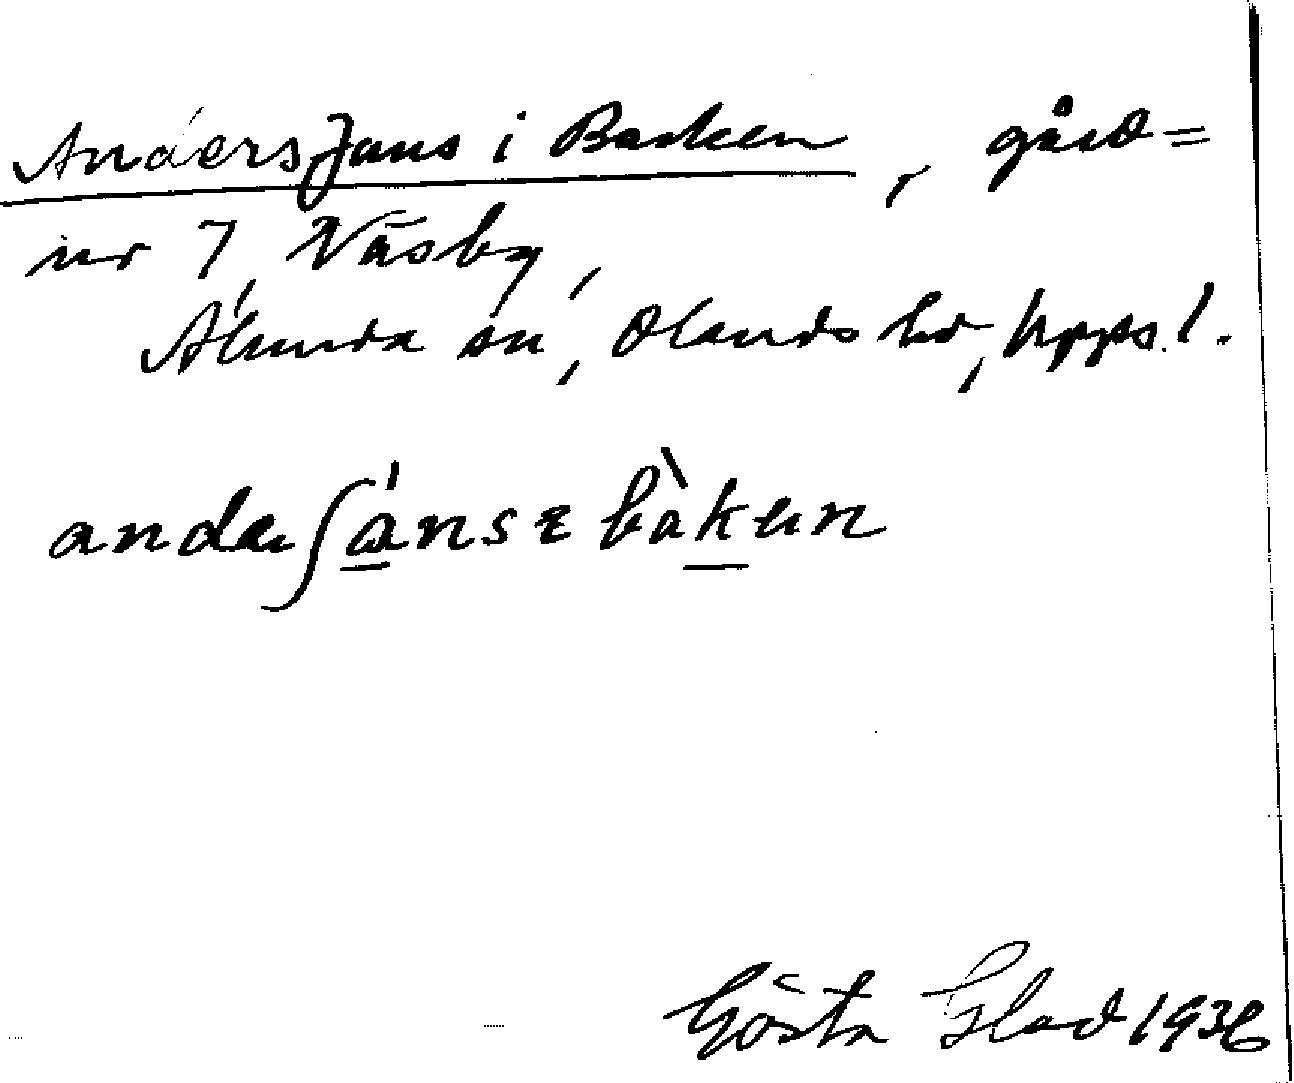 Anders Jans i Backen, gård=
nr 7, Väsby,
Alunda sn, Olands hd, Upps. l.
andeʃánsɛ bàkɯn
Gösta Glad 1936